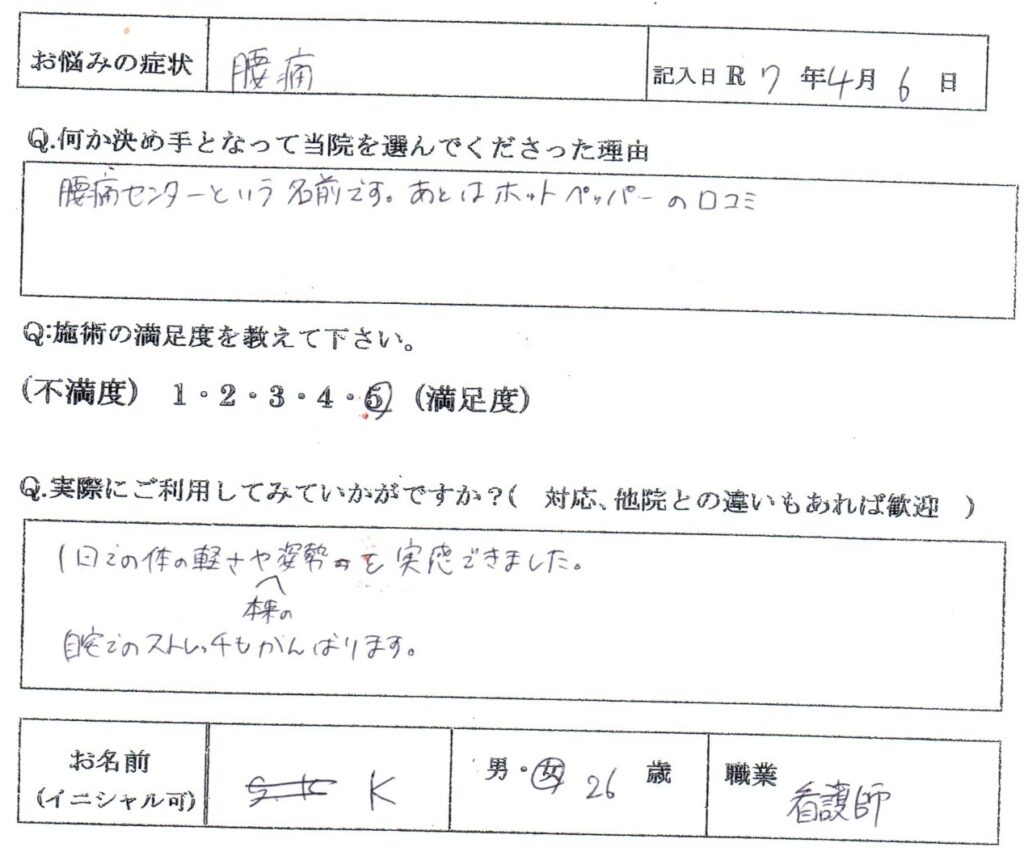 お悩みの症状 腰痛 記入日 R 7 年 4 月 6 日
Q.何か決め手となって当院を選んでくださった理由
腰痛センターという名前です。あとはホットペッパーの口コミ
Q:施術の満足度を教えて下さい。
(不満度) 1・2・3・4・5 (満足度)
Q.実際にご利用してみていかがですか？( 対応、他院との違いもあれば歓迎 )
1回での体の軽さや本来の姿勢を実感できました。
自宅でのストレッチもがんばります。
お名前 K 男・女 26 歳 職業 看護師
(イニシャル可)